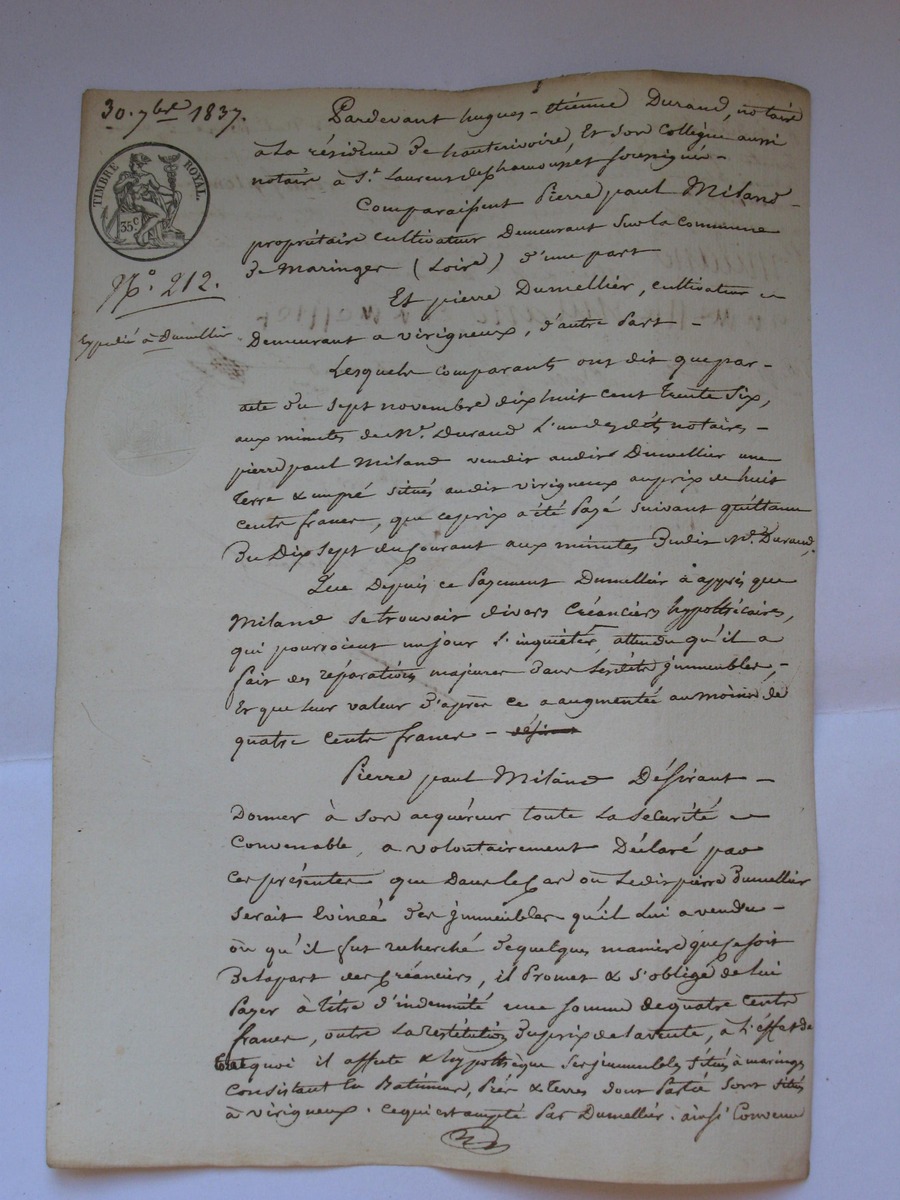 30. 7bre 1837.
TIMBRE ROYAL.
35 C
No. 212.
Expédié à Dumellier.
Pardevant hugues-étienne Durand, notaire
à La résidence de hauterivoire, Et son Collègue aussi
notaire à St. Laurent de Chamousset soussignés -
Comparaissent Pierre paul Miland -
propriétaire cultivateur Demeurant Sur la Commune
de Maringes (Loire) d'une part
Et pierre Dumellier, cultivateur
Demeurant a virigneux, d'autre Part -
Lesquels comparants ont dit que par -
acte du sept novembre dix huit cent Trente Six,
aux minutes de Me. Durand L'un desdits notaires -
pierre paul Miland vendit audit Dumellier une
Terre & un pré situés audit virigneux au prix de huit
cents francs, que ce prix a été Payé suivant quittance
Du Dix Sept du Courant aux minutes Dudit Me. Durand,
Que Depuis ce Payement Dumellier à appris que
Miland se trouvait divers Créanciers hypothécaires,
qui pourroient un jour L'inquiéter, attendu qu'il a
fait des réparations majeures dans lesdits jmmeubles, -
Et que leur valeur d'après ce a augmenté au moins de
quatre cents francs -
Pierre paul Miland Désirant -
Donner à son acquéreur toute La Sécurité
Convenable, a volontairement Déclaré par
ces présentes que Dans le Cas où Ledit pierre Dumellier
serait Evincé des jmmeubles qu'il Lui a vendu -
où qu'il fut recherché de quelques manière que ce soit
De la part des Créanciers, il Promet & s'oblige de lui
Payer à titre d'indemnité une somme de quatre cents
francs, outre La restitution du prix de la vente, à L'éffet de
quoi il affecte & hypothèque ses jmmeubles situés à maringes
Consistant En Batiments, Prés & Terres dont Partie sont situés
à virigneux. Ce qui est accepté Par Dumellier. ainsi Convenu